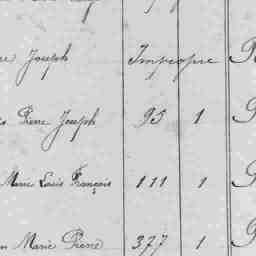 Joseph Impropre
Pierre Joseph 95 1
Marie Louis François 111 1
Marie Pierre 377 1